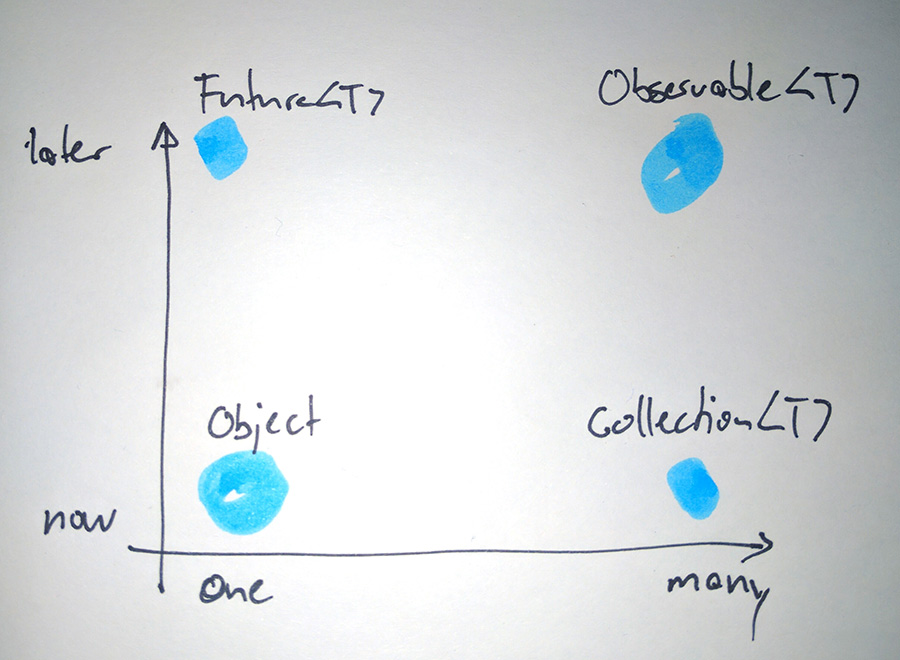 Future<T>
Observable<T>
later
Object
Collection<T>
now
One
many